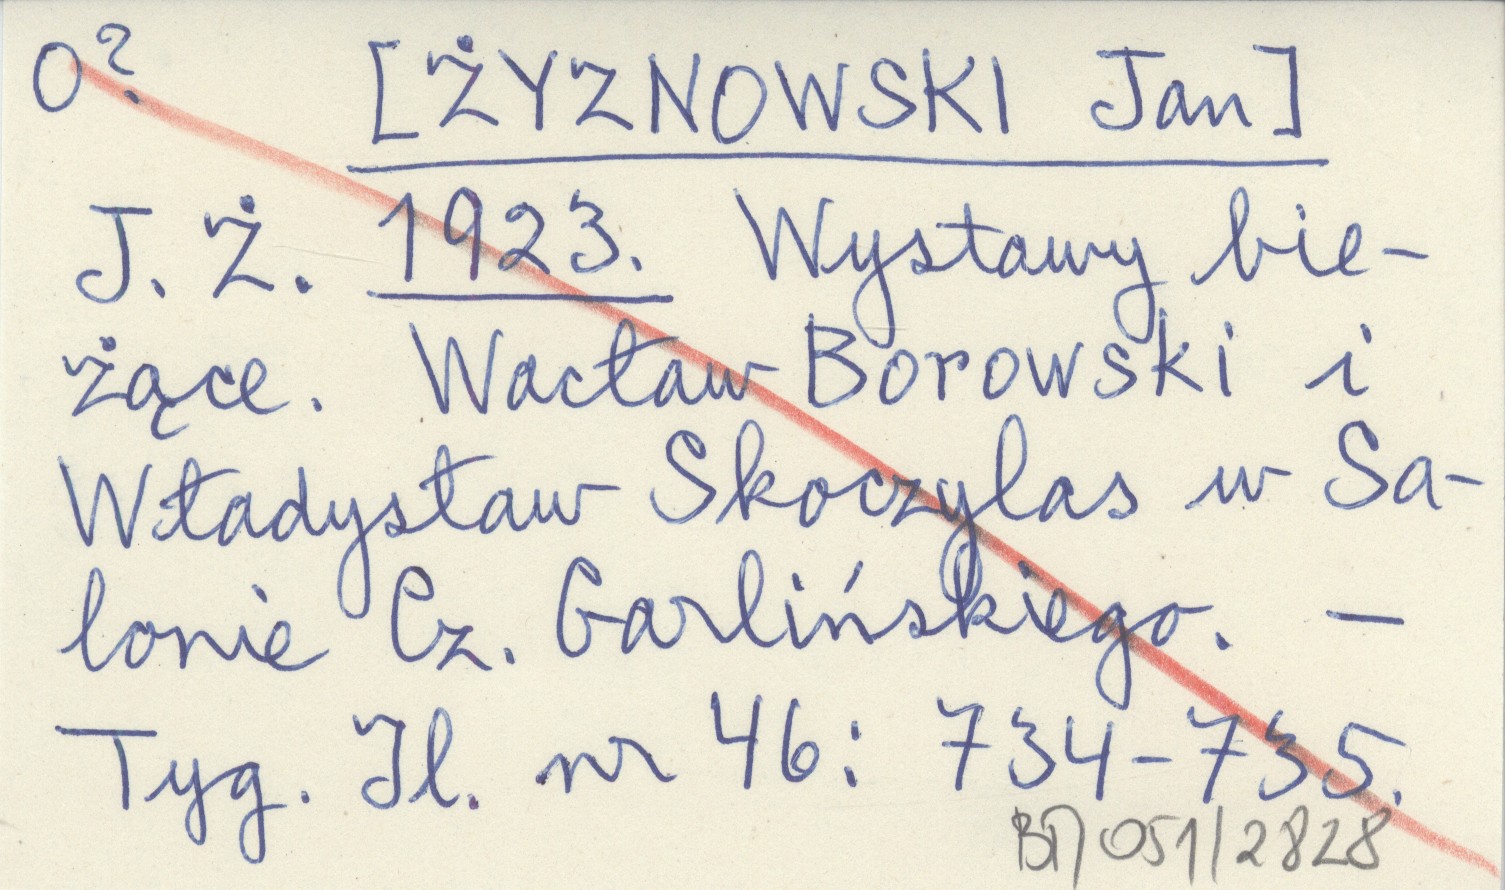 O? [ŻYZNOWSKI Jan]
J. Ż. 1923. Wystawy bie-
żące. Wacław Borowski i
Władysław Skoczylas w Sa-
lonie Cz. Garlińskiego. —
Tyg. Il. nr 46: 734-735.
BN 051/2828